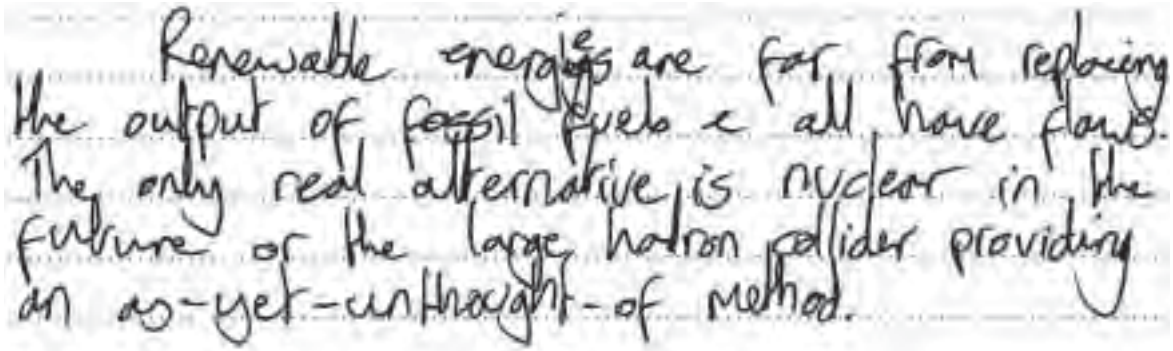 Renewable energies are far from replacing
the output of fossil fuels & all have flaws.
The only real alternative is nuclear in the
future or the large hadron collider providing
an as-yet-unthought-of method.